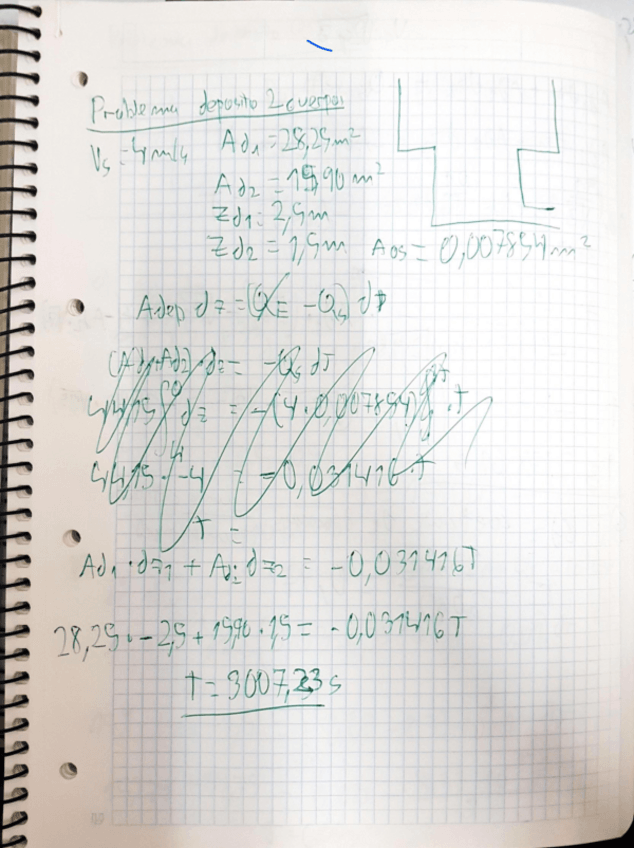 Problema deposito 2 cuerpos
Vs = 4 m/s Ad1 = 28,25 m²
Ad2 = 15,90 m²
Zd1 = 2,5 m
Zd2 = 1,5 m Aos = 0,007854 m²
Adep dz = (QE - Qs) dt
(Ad1+Ad2) dz = -Qs dt
44,15 ∫ dz = -(4 · 0,007854) ∫ · t
44,15 · -4 = -0,031416 · t
t =
Ad1 · dz1 + Ad2 · dz2 = -0,031416T
28,25 · -2,5 + 15,90 · 1,5 = -0,031416 T
t = 3007,23 s